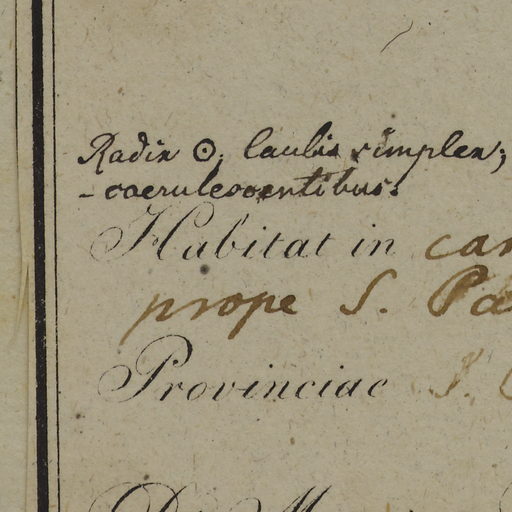 Radix ☉, Caulis simplex;
-caerulescentibus.
Habitat in
prope S.
Provinciae